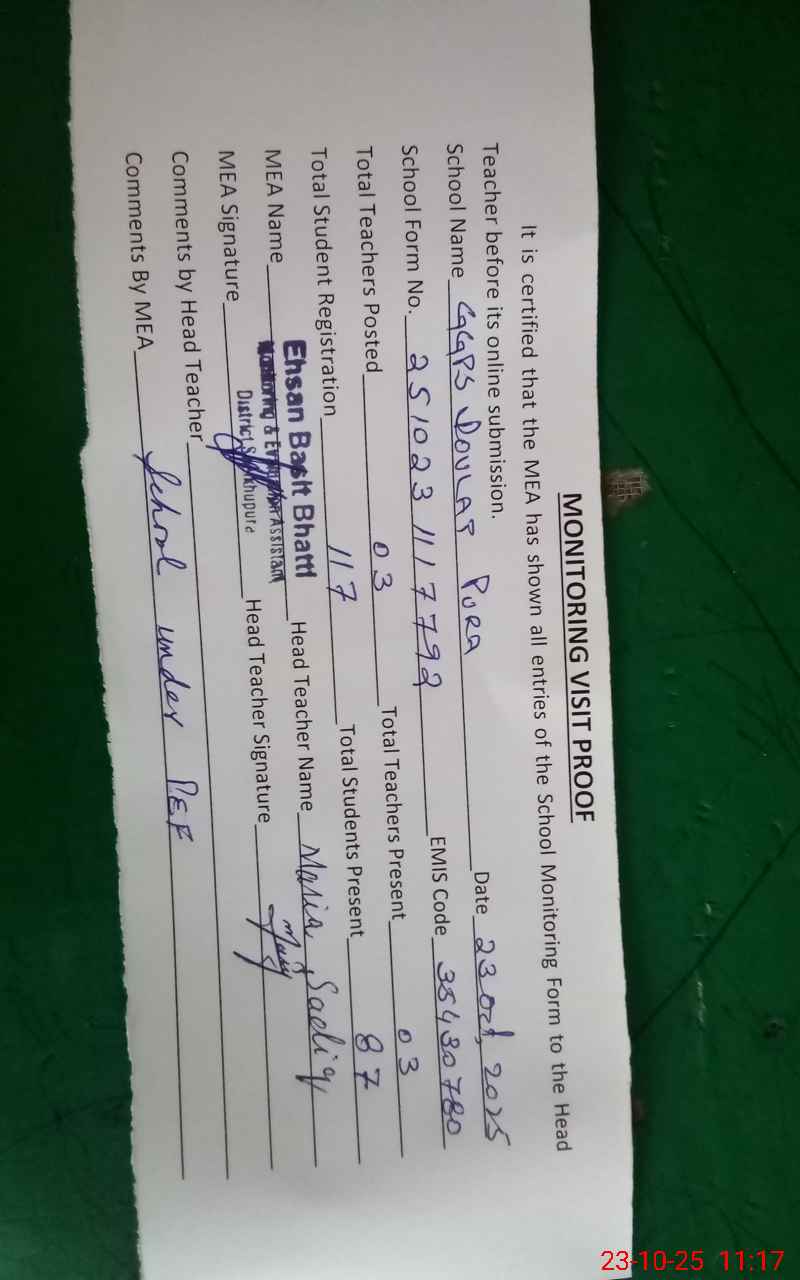 MONITORING VISIT PROOF
It is certified that the MEA has shown all entries of the School Monitoring Form to the Head
Teacher before its online submission.
School Name GGPS DOULAT PURA Date 23 Oct, 2025
School Form No. 251023 1117792 EMIS Code 35430780
Total Teachers Posted 03 Total Teachers Present 03
Total Student Registration 117 Total Students Present 87
MEA Name Ehsan Basit Bhatti Head Teacher Name Maria Sadiq
Monitoring & Evaluation Assistant
District Sheikhupura
MEA Signature Head Teacher Signature
Comments by Head Teacher
Comments By MEA School under PEF
23-10-25 11:17